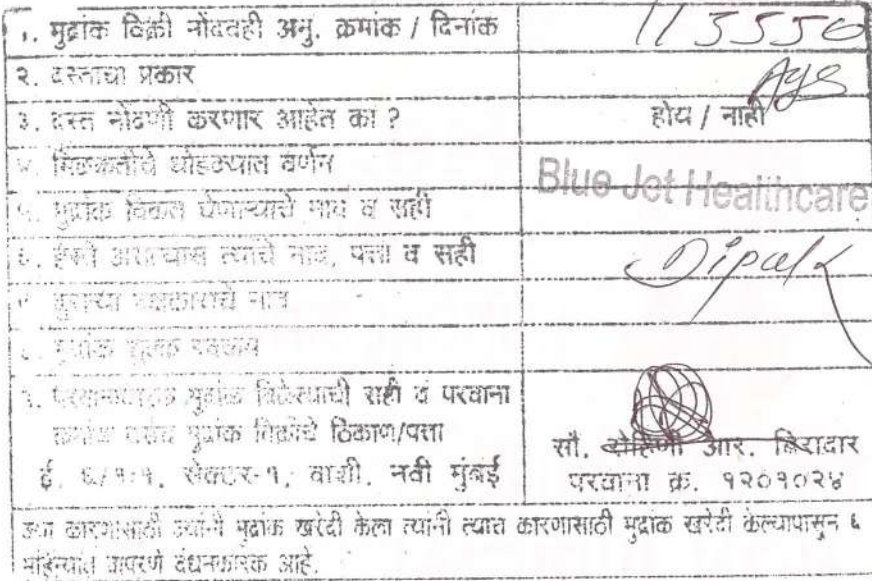 १. मुद्रांक विक्री नोंदवही अनु. क्रमांक / दिनांक 115550
२. दस्ताचा प्रकार Ags
३. दस्त नोंदणी करणार आहेत का ? होय / नाही
४. मिळकतीचे थोडक्यात वर्णन
Blue Jet Healthcare
५. मुद्रांक विकत घेणाऱ्याचे नाव व सही
६. हस्ते असल्यास त्यांचे नाव, पत्ता व सही Dipak
७. दुसऱ्या पक्षकाराचे नाव
८. मुद्रांक शुल्क रक्कम
९. परवानाधारक मुद्रांक विक्रेत्याची सही व परवाना
क्रमांक तसेच मुद्रांक विक्रीचे ठिकाण/पत्ता
सौ. रोहिणी आर. बिरादार
ई. ६/१:१, सेक्टर-१, वाशी. नवी मुंबई
परवाना क्र. १२०१०२४
ज्या कारणासाठी ज्यांनी मुद्रांक खरेदी केला त्यांनी त्याच कारणासाठी मुद्रांक खरेदी केल्यापासून ६
महिन्यात वापरणे बंधनकारक आहे.